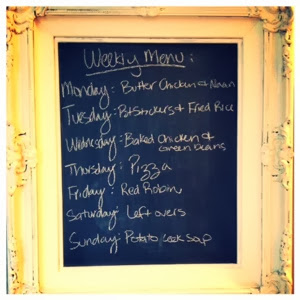 Weekly Menu:
Monday: Butter Chicken & Naan
Tuesday: Potstickers & Fried Rice
Wednesday: Baked Chicken &
Green Beans
Thursday: Pizza
Friday: Red Robin
Saturday: Left overs
Sunday: Potato Leek Soup